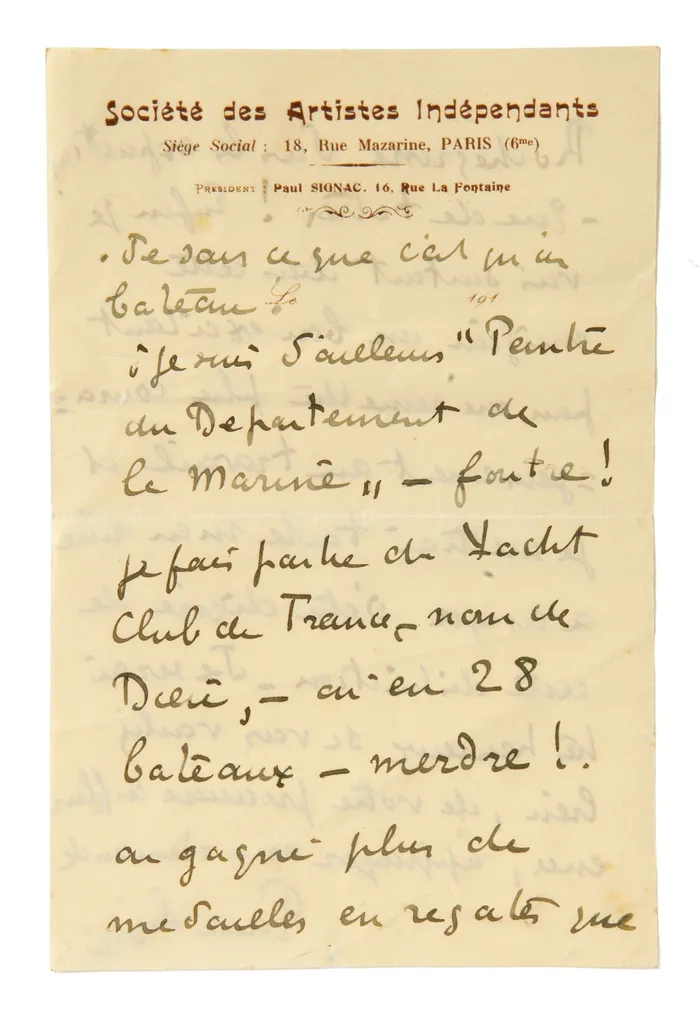 Société des Artistes Indépendants
Siège Social : 18, Rue Mazarine, PARIS (6me)
PRÉSIDENT : Paul SIGNAC. 16, Rue La Fontaine
. Je sais ce que c'est qu'un
bateau.
Le 191
je suis d'ailleurs "Peintre
du Département de
la Marine" — foutre !
je fais partie du Yacht
Club de France, nom de
Dieu, — ai eu 28
bateaux — merdre !.
ai gagné plus de
médailles en régates que